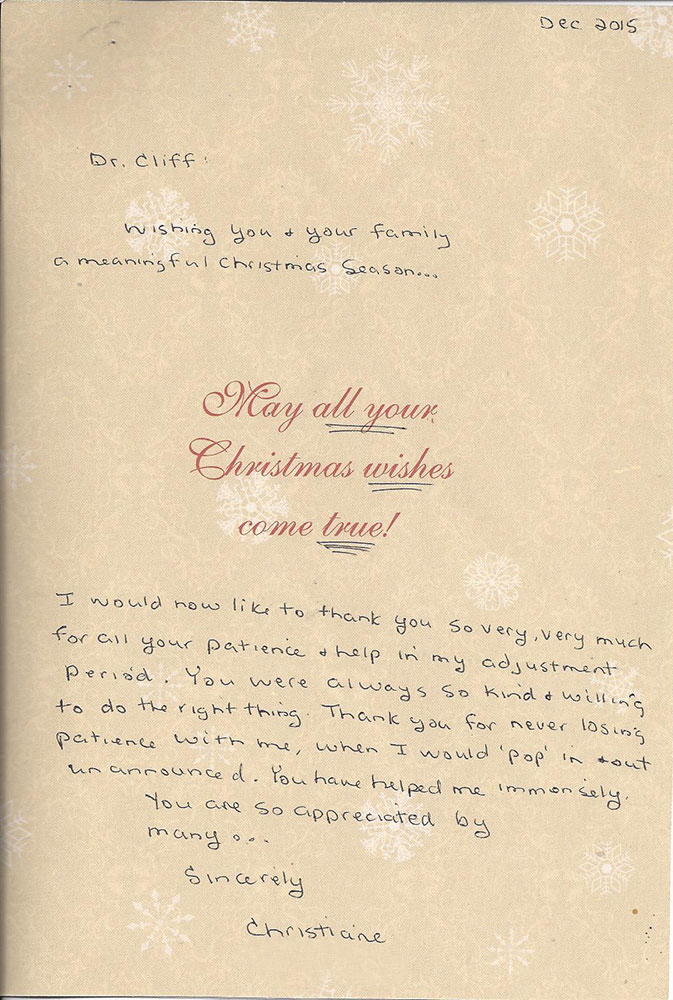 Dec 2015
Dr. Cliff:
Wishing you & your family
a meaningful Christmas Season...
May all your
Christmas wishes
come true!
I would now like to thank you so very, very much
for all your patience & help in my adjustment
period. You were always so kind & willing
to do the right thing. Thank you for never losing
patience with me, when I would 'pop' in & out
unannounced. You have helped me immensely.
You are so appreciated by
many...
Sincerely
Christiane